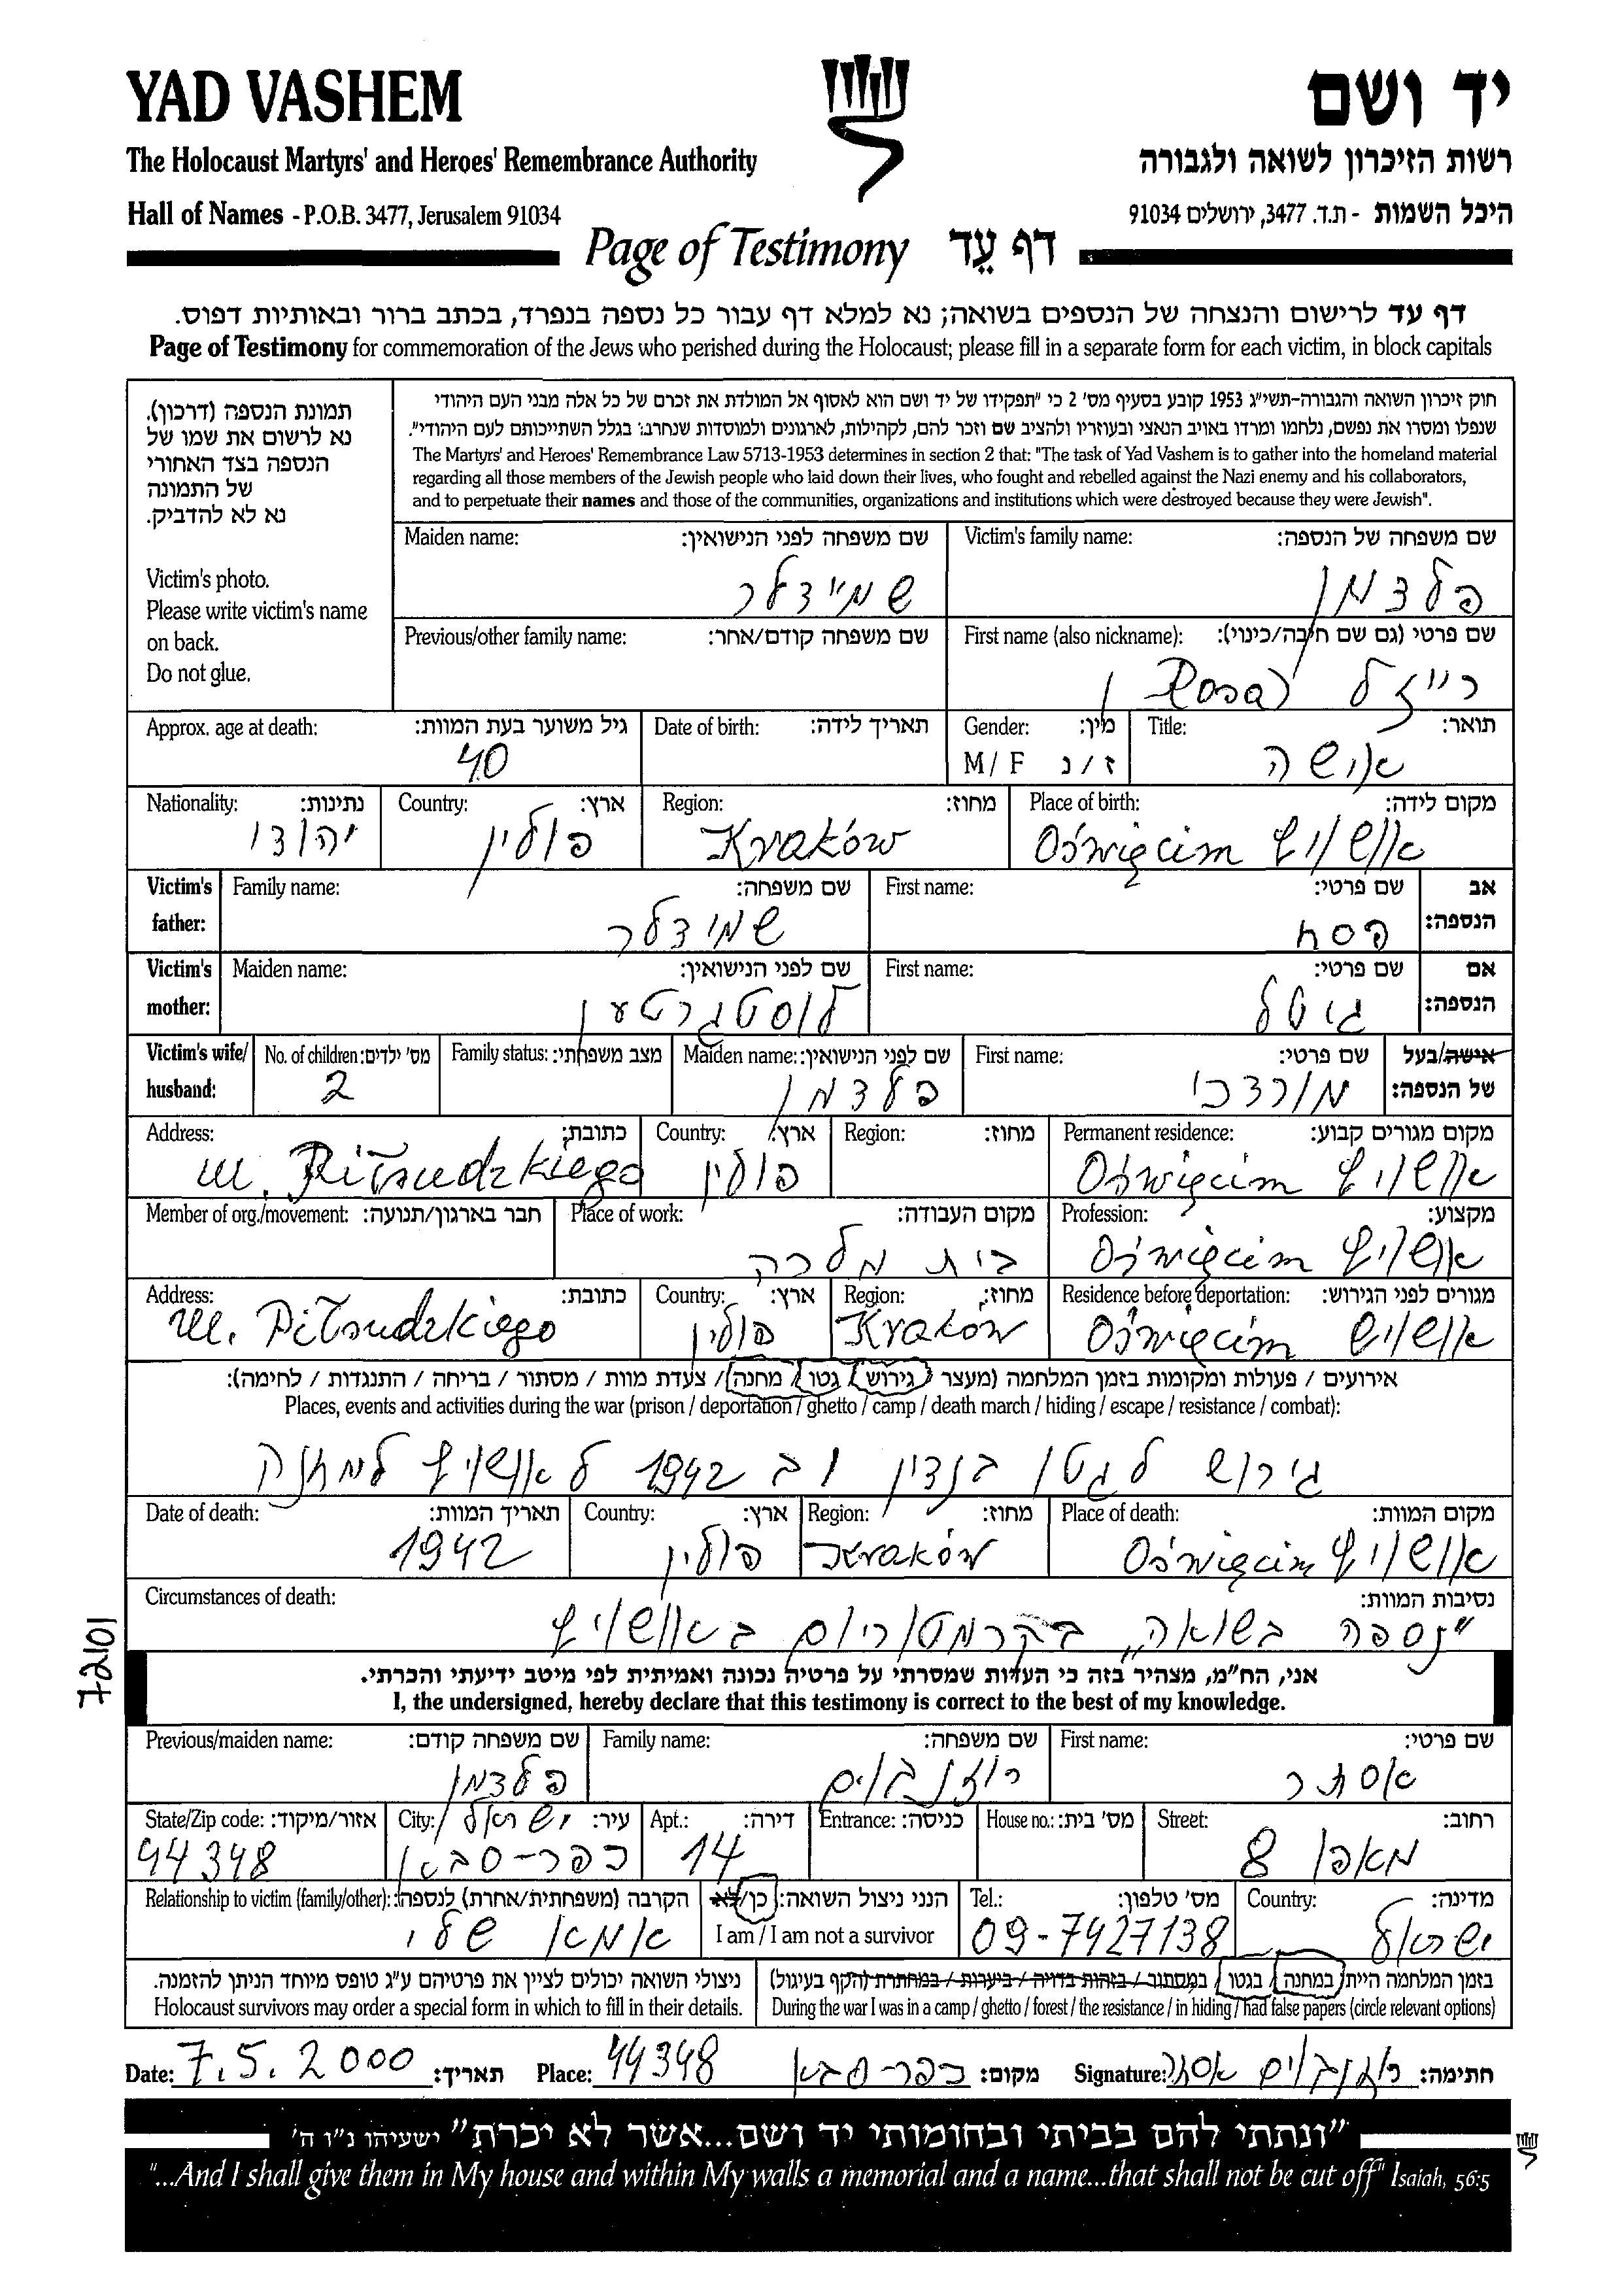 YAD VASHEM
יד ושם
The Holocaust Martyrs' and Heroes' Remembrance Authority
רשות הזיכרון לשואה ולגבורה
Hall of Names - P.O.B. 3477, Jerusalem 91034
היכל השמות - ת.ד. 3477, ירושלים 91034
Page of Testimony דף עֵד
דף עד לרישום והנצחה של הנספים בשואה; נא למלא דף עבור כל נספה בנפרד, בכתב ברור ובאותיות דפוס.
Page of Testimony for commemoration of the Jews who perished during the Holocaust; please fill in a separate form for each victim, in block capitals
תמונת הנספה (דרכון).
נא לרשום את שמו של
הנספה בצד האחורי
של התמונה
נא לא להדביק.
Victim's photo.
Please write victim's name
on back.
Do not glue.
חוק זיכרון השואה והגבורה-תשי"ג 1953 קובע בסעיף מס' 2 כי "תפקידו של יד ושם הוא לאסוף אל המולדת את זכרם של כל אלה מבני העם היהודי
שנפלו ומסרו את נפשם, נלחמו ומרדו באויב הנאצי ובעוזריו ולהציב שם וזכר להם, לקהילות, לארגונים ולמוסדות שנחרבו בגלל השתייכותם לעם היהודי".
The Martyrs' and Heroes' Remembrance Law 5713-1953 determines in section 2 that: "The task of Yad Vashem is to gather into the homeland material
regarding all those members of the Jewish people who laid down their lives, who fought and rebelled against the Nazi enemy and his collaborators,
and to perpetuate their names and those of the communities, organizations and institutions which were destroyed because they were Jewish".
Victim's family name: שם משפחה של הנספה:
פלדמן
Maiden name: שם משפחה לפני הנישואין:
שמיידלר
First name (also nickname): שם פרטי (גם שם חיבה/כינוי):
רייזל (Rosa)
Previous/other family name: שם משפחה קודם/אחר:
Title: תואר:
אישה
Gender: מין:
M / F ז / נ
Date of birth: תאריך לידה:
Approx. age at death: גיל משוער בעת המוות:
40
Place of birth: מקום לידה:
אושויץ Oświęcim
Region: מחוז:
Kraków
Country: ארץ:
פולין
Nationality: נתינות:
יהודי
Victim's father: אב הנספה:
First name: שם פרטי:
פסח
Family name: שם משפחה:
שמידלר
Victim's mother: אם הנספה:
First name: שם פרטי:
גיטל
Maiden name: שם לפני הנישואין:
לוסטגרטען
Victim's wife/ husband: אישה/בעל של הנספה:
First name: שם פרטי:
מורדכי
Maiden name: שם לפני הנישואין:
פלדמן
Family status: מצב משפחתי:
No. of children: מס' ילדים:
2
Permanent residence: מקום מגורים קבוע:
אושויץ Oświęcim
Region: מחוז:
Country: ארץ:
פולין
Address: כתובת:
ul. Piłsudzkiego
Profession: מקצוע:
אושויץ Oświęcim
Place of work: מקום העבודה:
Member of org./movement: חבר בארגון/תנועה:
Residence before deportation: מגורים לפני הגירוש:
אושויש Oświęcim
Region: מחוז:
Kraków
Country: ארץ:
פולין
Address: כתובת:
ul. Piłsudzkiego
אירועים / פעולות ומקומות בזמן המלחמה (מעצר / גירוש / גטו / מחנה / צעדת מוות / מסתור / בריחה / התנגדות / לחימה):
Places, events and activities during the war (prison / deportation / ghetto / camp / death march / hiding / escape / resistance / combat):
גירוש לגטו בנדין וב 1942 לאושויץ למחנה
Place of death: מקום המוות:
אושויץ Oświęcim
Region: מחוז:
Kraków
Country: ארץ:
פולין
Date of death: תאריך המוות:
1942
Circumstances of death: נסיבות המוות:
"נספה בשואה" בקרמטוריום באושויץ
72101
אני, הח"מ, מצהיר בזה כי העדות שמסרתי על פרטיה נכונה ואמיתית לפי מיטב ידיעתי והכרתי.
I, the undersigned, hereby declare that this testimony is correct to the best of my knowledge.
First name: שם פרטי:
אסתר
Family name: שם משפחה:
רוזנבוים
Previous/maiden name: שם משפחה קודם:
פלדמן
Street: רחוב:
מאפו 8
House no.: מס' בית:
Entrance: כניסה:
Apt.: דירה:
14
City: עיר:
ישראל
כפר-סבא
State/Zip code: אזור/מיקוד:
44348
Country: מדינה:
ישראל
Tel.: מס' טלפון:
09-7427138
הנני ניצול השואה: כן/לא
I am / I am not a survivor
Relationship to victim (family/other): הקרבה (משפחתית/אחרת) לנספה:
אמא שלי
בזמן המלחמה הייתי במחנה / בגטו / במסתור / בזהות בדויה / ביערות / במחתרת (הקף בעיגול)
During the war I was in a camp / ghetto / forest / the resistance / in hiding / had false papers (circle relevant options)
ניצולי השואה יכולים לציין את פרטיהם ע"ג טופס מיוחד הניתן להזמנה.
Holocaust survivors may order a special form in which to fill in their details.
Date: 7.5.2000 תאריך: Place: 44348 כפר-סבא מקום: Signature: רוזנבוים אסתר חתימה:
"ונתתי להם בביתי ובחומותי יד ושם...אשר לא יכרת" ישעיהו נ"ו ה'
"...And I shall give them in My house and within My walls a memorial and a name...that shall not be cut off" Isaiah, 56:5